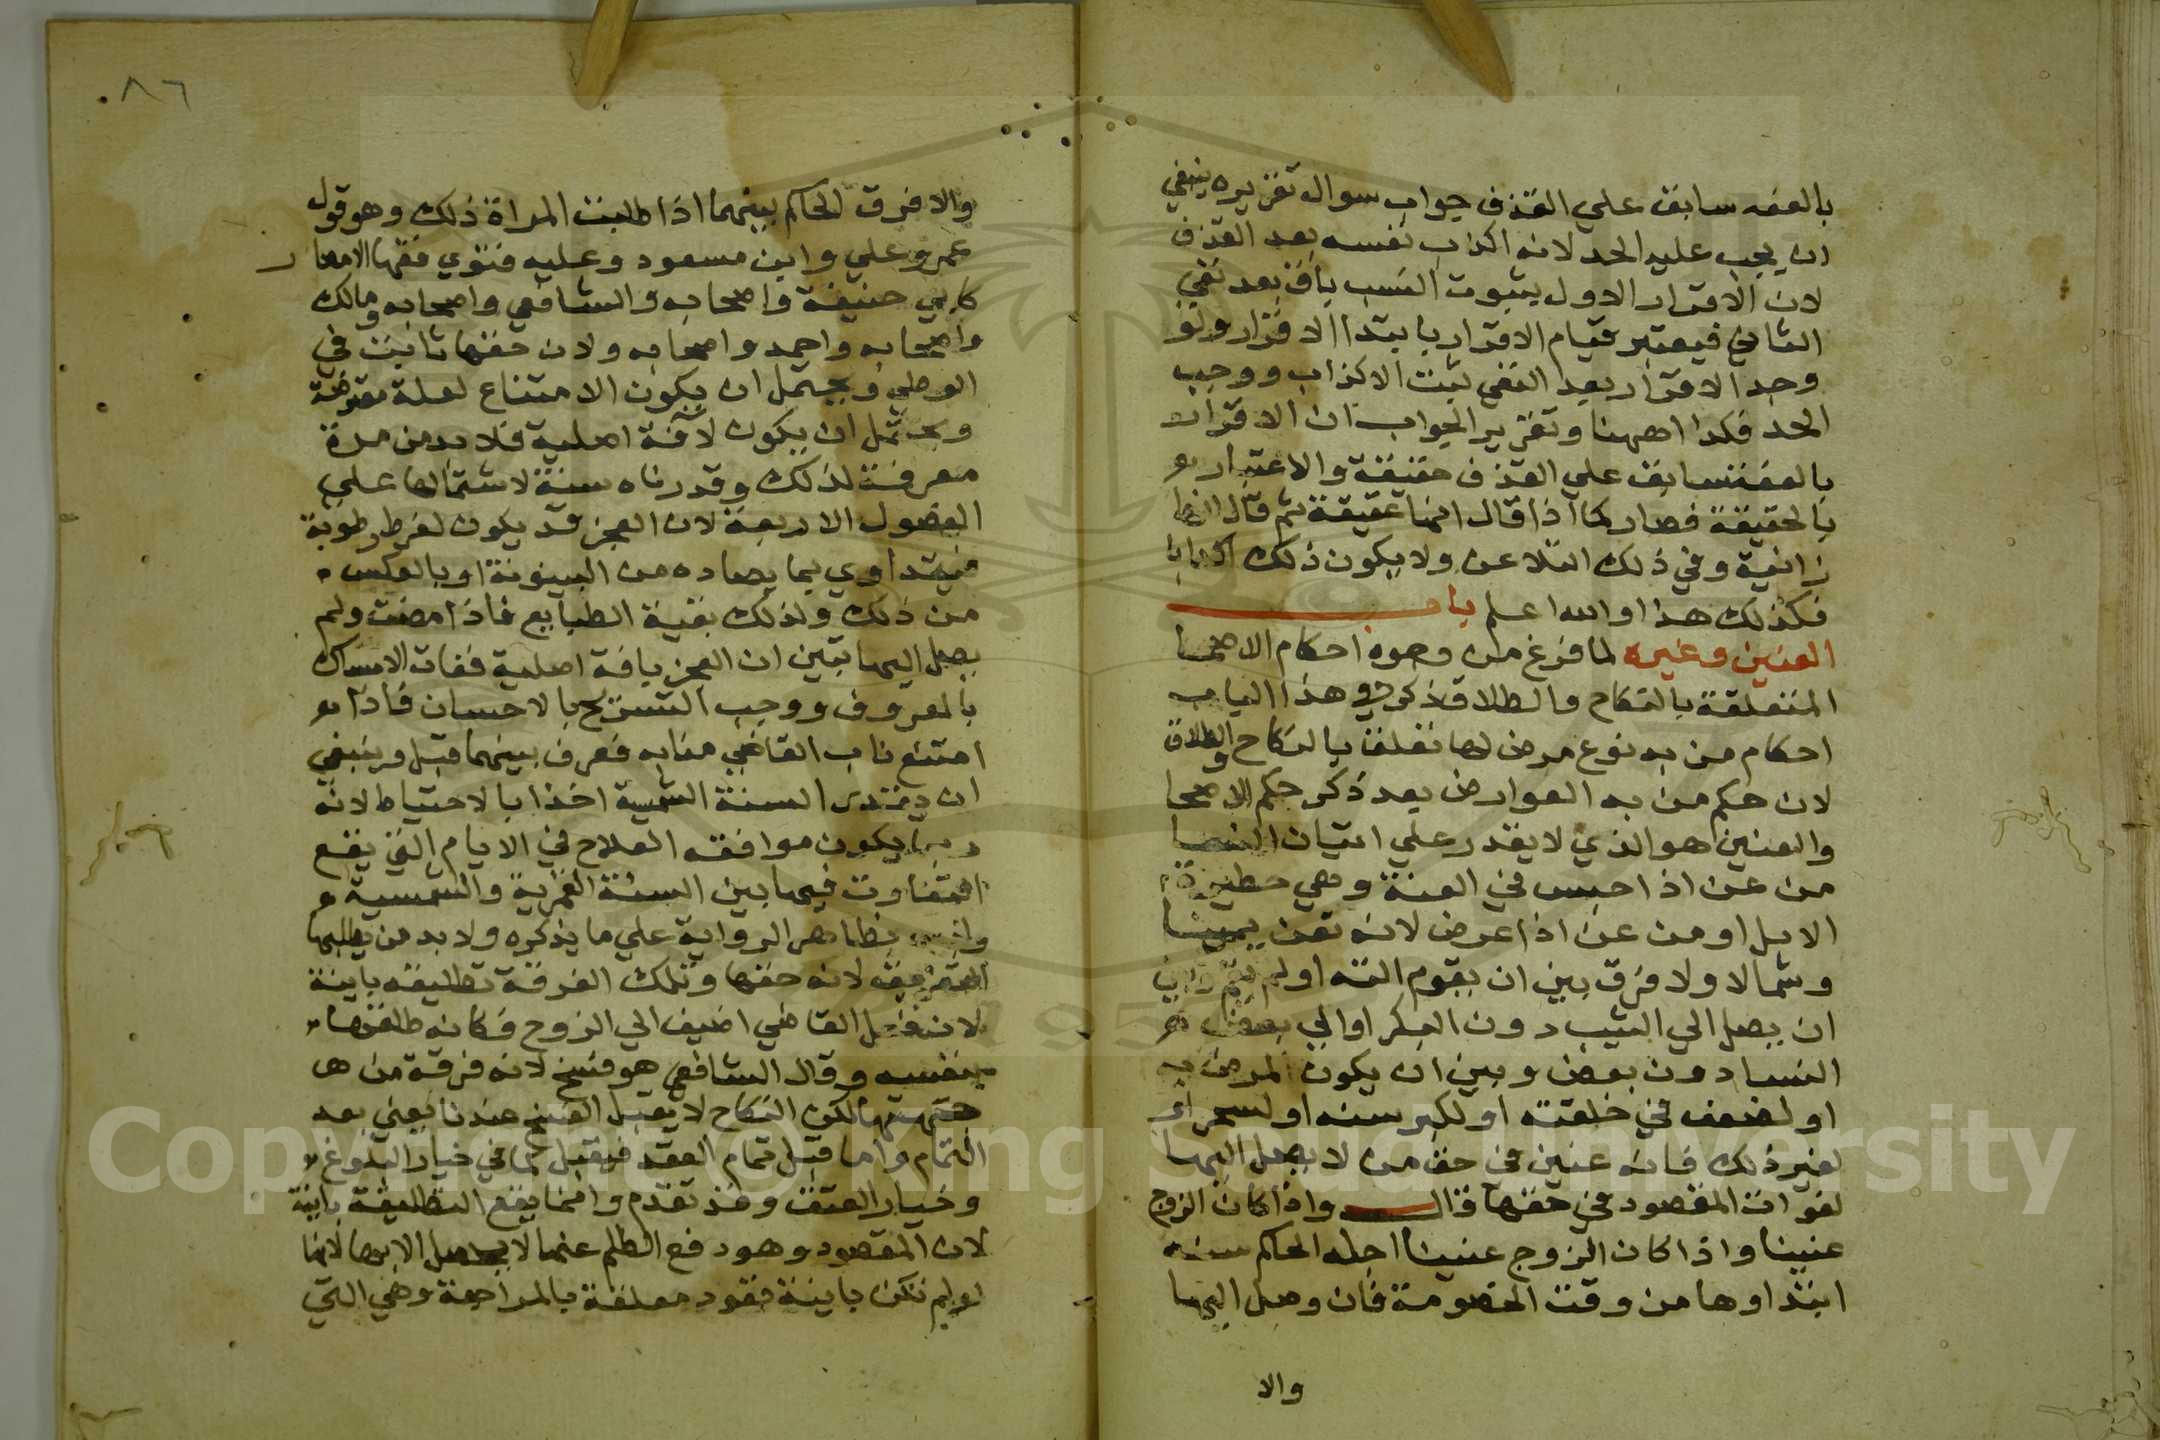 بالعفة سابق علي القذف جواب سوال تقريره ينبغي
ان يجب عليه الحد لانه اكذب نفسه بعد القذف
لان الاقرار الاول بثبوت النسب باق بعد نفي
الثاني فيعتبر قيام الاقرار بابتدا الاقرار ولو
وجد الاقرار بعد النفي يثبت الاكذاب ووجب
الحد فكذا ههنا وتقرير الجواب ان الاقرار
بالعفة سابق علي القذف حقيقة والاعتبار
بالحقيقة فصار كما اذا قال انها عفيفة ثم قال انها
زانية وفي ذلك التلاعن ولا يكون ذلك اكذابا
فكذلك هذا والله اعلم باب
العنين وغيره لما فرغ من وجوه احكام الاصحا
المتعلقة بالنكاح والطلاق ذكر في هذا الباب
احكام من به نوع مرض لها تعلق بالنكاح والطلاق
لان حكم من به العوارض بعد ذكر حكم الاصحا
والعنين هو الذي لا يقدر علي اتيان النسا
من عن اذا حبس في العنة وهي حظيرة
الابل او من عن اذا عرض لانه تعن يمينا
وشمالا ولا فرق بين ان يقوم الته او لم يقم وبين
ان يصل الي الثيب دون البكر او الي بعض
النسا دون بعض وبين ان يكون لمرض به
او لضعف في خلقته او لكبر سنه او لسحر او
لغير ذلك فانه عنين في حق من لا يصل اليها
لفوات المقصود في حقها قال واذا كان الزوج
عنينا واذا كان الزوج عنينا اجله الحاكم سنة
ابتداوها من وقت الخصومة فان وصل اليها
والا
٨٦
والا فرق الحاكم بينهما اذا طلبت المراة ذلك وهو قول
عمر وعلي وابن مسعود وعليه فتوي فقها الامصار
كابي حنيفة واصحابه والشافعي واصحابه ومالك
واصحابه واحمد واصحابه ولان حقها ثابت في
الوطي ويحتمل ان يكون الامتناع لعلة معترضة
ويحتمل ان يكون لآفة اصلية فلا بد من مدة
معرفة لذلك وقدرناه سنة لاشتمالها علي
الفصول الاربعة لان العجز قد يكون لفرط رطوبة
فيتداوي بما يضاده من اليبوسة او بالعكس
من ذلك ولذلك بقية الطبايع فاذا مضت ولم
يصل اليها تبين ان العجز بافة اصلية ففات الامساك
بالمعروف ووجب التسريح بالاحسان فاذا
امتنع ناب القاضي منابه ففرق بينهما قبل وينبغي
ان يقتدر السنة الشمسية اخذا بالاحتياط لانه
ربما يكون موافقه العلاج في الايام التي يقع
التفاوت فيها بين السنة القمرية والشمسية
بظاهر الرواية علي ما يذكره ولا بد من طلبها
التفريق لانه حقها وتلك الفرقة تطليقه باينة
لان فعل القاضي اضيف الي الزوج فكانه طلقها
بنفسه وقال الشافعي هو فسخ لانه فرقة من
جهتها لكن النكاح لا يقبل الفسخ عندنا يعني بعد
التمام واما قبل تمام العقد فيقبل كما في خيار البلوغ
وخيار العتق وقد تقدم وانما يقع التطليقة باينة
لان المقصود وهو دفع الظلم عنها لا يحصل الا بها لانها
لو لم تكن باينة تعود معلقة بالمراجعة وهي التي